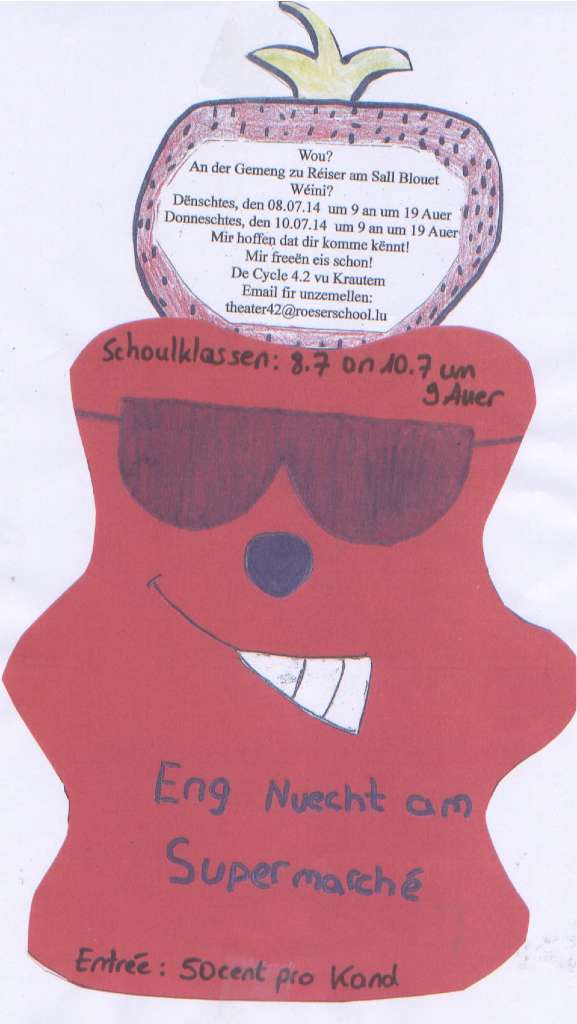 Wou?
An der Gemeng zu Réiser am Sall Blouet
Wéini?
Dënschtes, den 08.07.14 um 9 an um 19 Auer
Donneschtes, den 10.07.14 um 9 an um 19 Auer
Mir hoffen dat dir komme kënnt!
Mir freeën eis schon!
De Cycle 4.2 vu Krautem
Email fir unzemellen:
theater42@roeserschool.lu
Schoulklassen: 8.7 on 10.7 um
9 Auer
Eng Nuecht am
Supermarché
Entrée : 50cent pro Kand